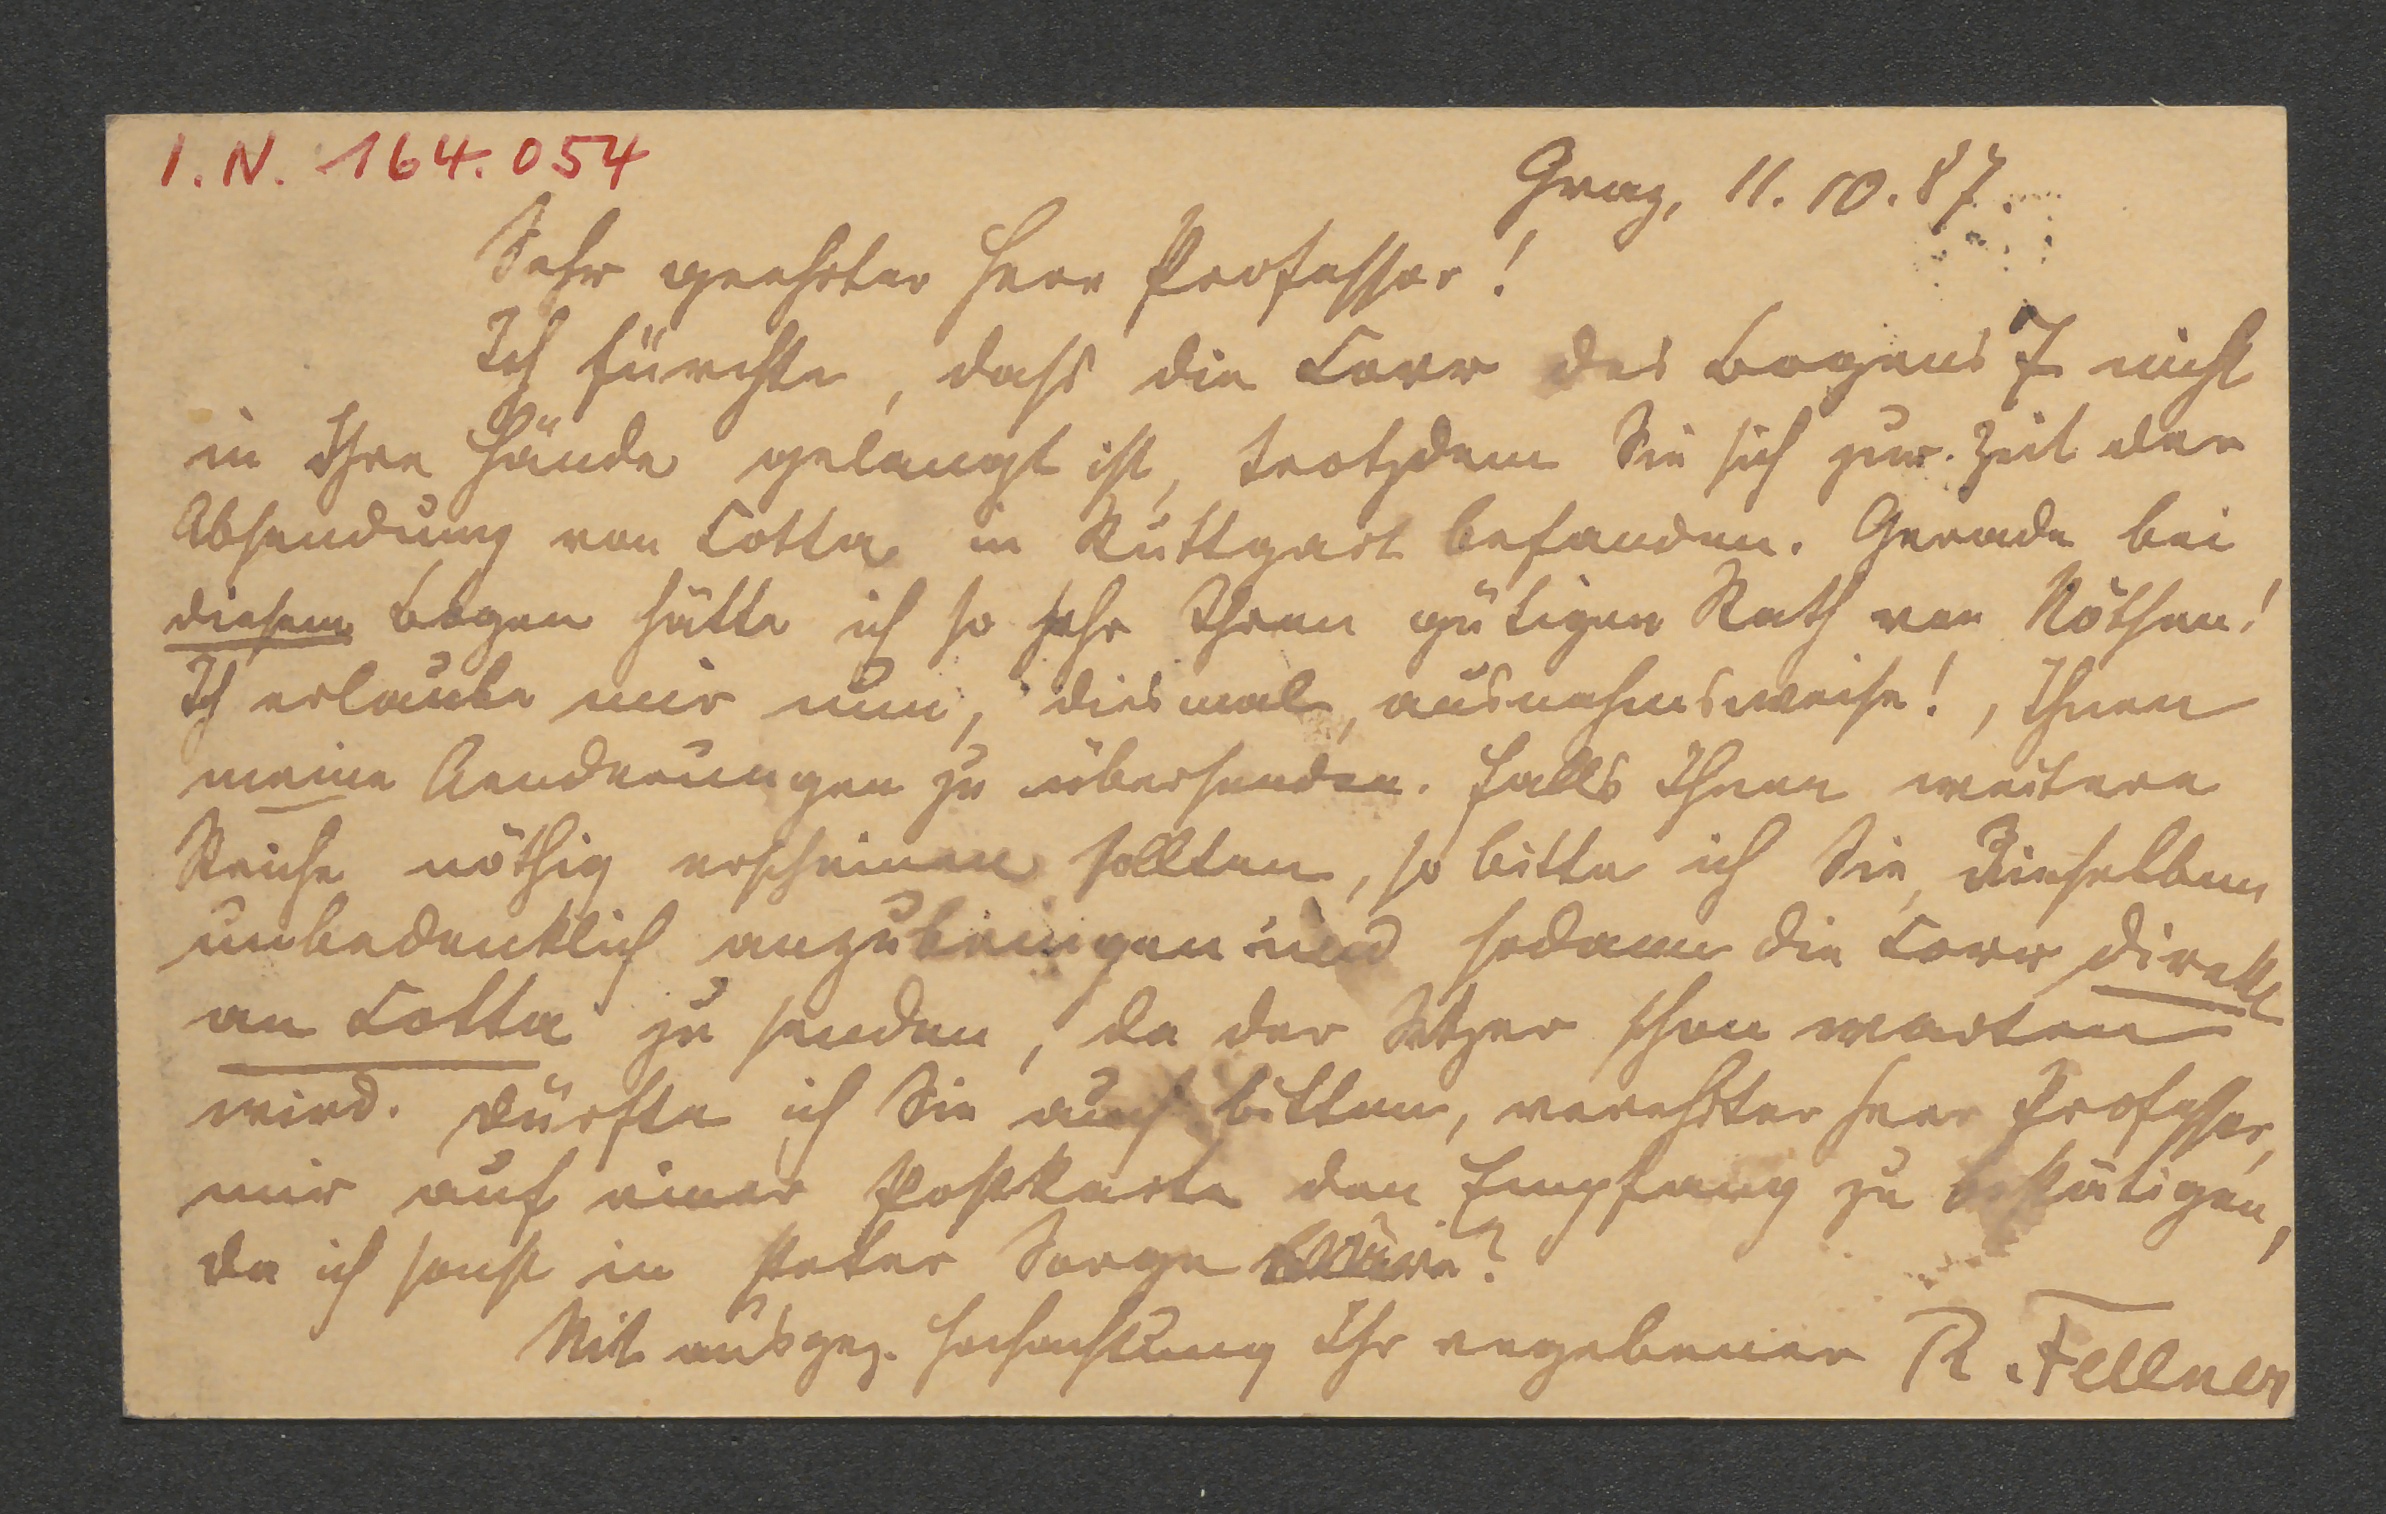 I. N. 164.054
Graz, 11.10.87.
Sehr geehrter Herr Professor!
Ich fürchte, dass die Corr des Bogens 7 nicht
in Ihre Hände gelangt ist, trotzdem Sie sich zur Zeit der
Absendung von Cotta in Stuttgart befanden. Gerade bei
diesem Bogen hätte ich so sehr Ihren gütigen Rath von Nöthen!
Ich erlaube mir nun, diesmal, ausnahmsweise!, Ihnen
meine Aenderungen zu übersenden. Falls Ihnen weitere
Striche nöthig erscheinen sollten, so bitte ich Sie, dieselben
unbedenklich anzubringen und sodann die Corr direkt
an Cotta zu senden, da der Setzer schon warten
wird. Dürfte ich Sie auch bitten, verehrter Herr Professor,
mir auf einer Postkarte den Empfang zu bestätigen,
da ich sonst in steter Sorge wäre?
Mit ausgez. Hochachtung Ihr ergebener R. Fellner